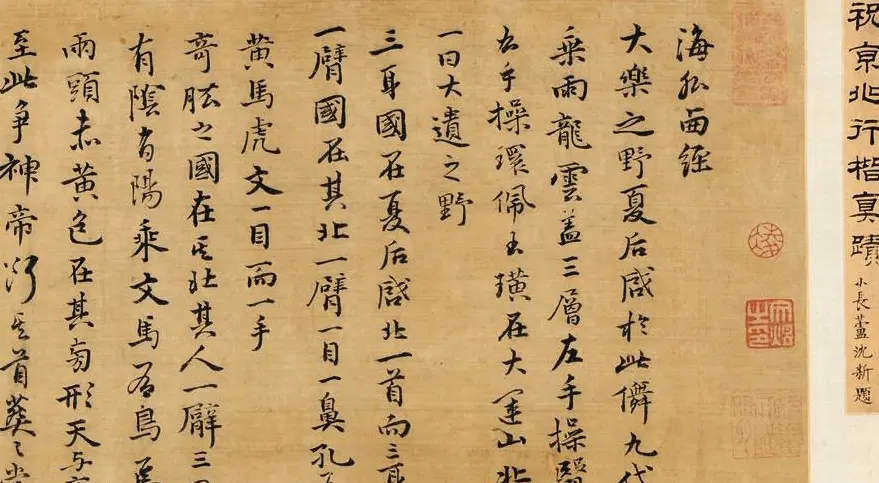 祝京兆行楷真蹟
小長蘆沈新題
海外西經
大樂之野夏后啟於此儛九代
乘兩龍雲盖三層左手操翳
右手操環佩玉璜在大運山北
一曰大遺之野
三身國在夏后啟北一首而三身
一臂國在其北一臂一目一鼻孔
黄馬虎文一目而一手
奇肱之國在其北其人一臂三目
有陰有陽乘文馬有鳥焉
兩頭赤黄色在其旁形天与
至此争神帝斷其首葬之常